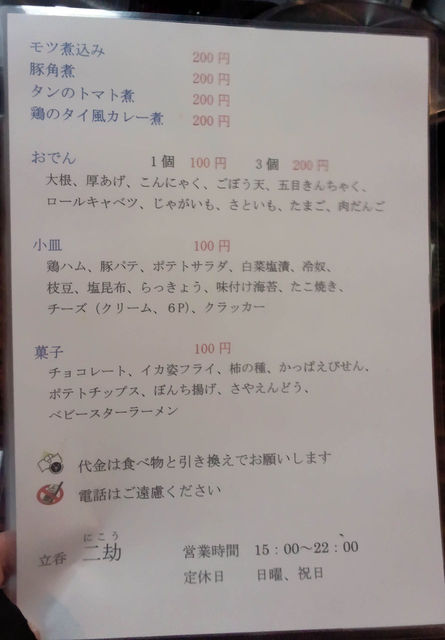 モツ煮込み 200円
豚角煮 200円
タンのトマト煮 200円
鶏のタイ風カレー煮 200円
おでん 1個 100円 3個 200円
大根、厚あげ、こんにゃく、ごぼう天、五目きんちゃく、
ロールキャベツ、じゃがいも、さといも、たまご、肉だんご
小皿 100円
鶏ハム、豚パテ、ポテトサラダ、白菜塩漬、冷奴、
枝豆、塩昆布、らっきょう、味付け海苔、たこ焼き、
チーズ（クリーム、６P）、クラッカー
菓子 100円
チョコレート、イカ姿フライ、柿の種、かっぱえびせん、
ポテトチップス、ぼんち揚げ、さやえんどう、
ベビースターラーメン
代金は食べ物と引き換えでお願いします
電話はご遠慮ください
にこう
立呑 二劫 営業時間 15：00～22：00
定休日 日曜、祝日